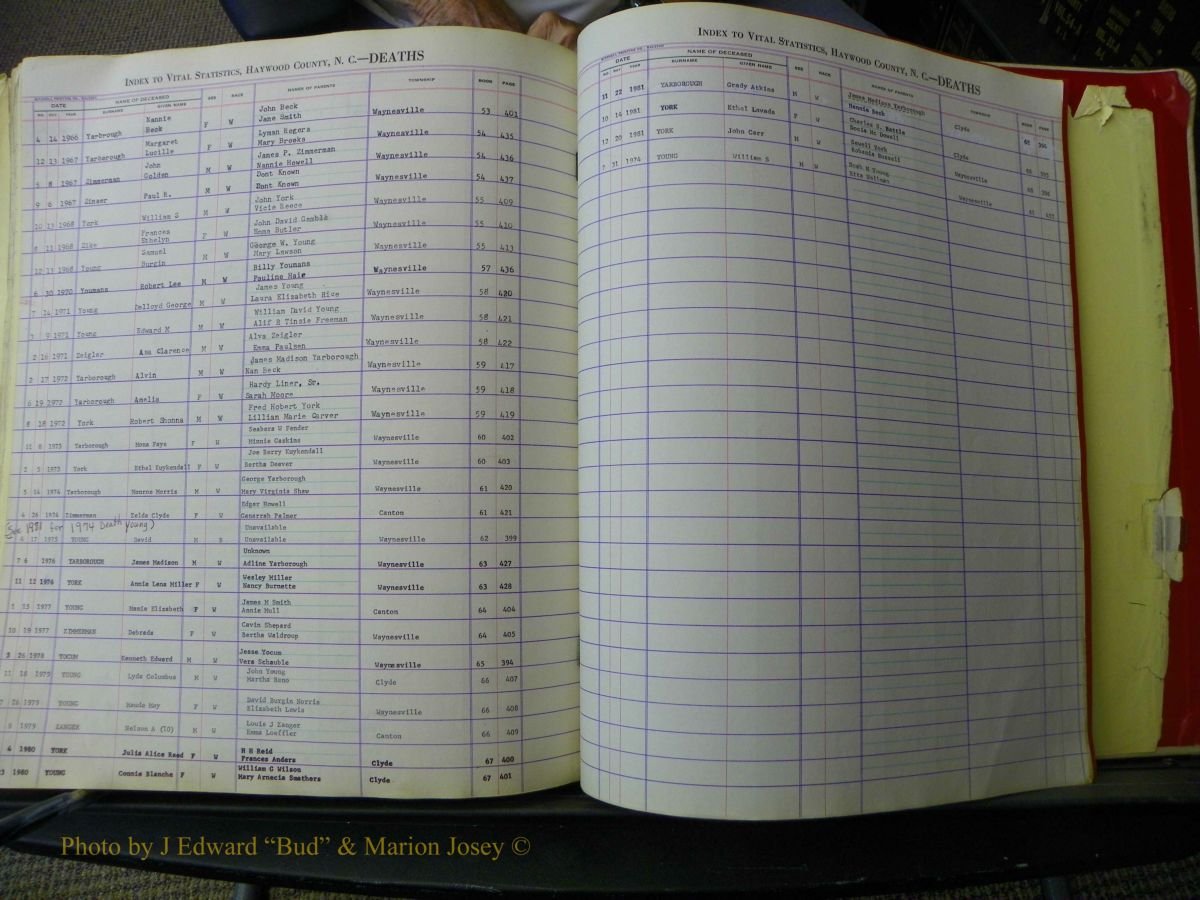 INDEX TO VITAL STATISTICS, HAYWOOD COUNTY, N. C.—DEATHS
DATE NAME OF DECEASED SEX RACE NAME OF PARENTS TOWNSHIP BOOK PAGE
NO. DAY YEAR SURNAME GIVEN NAME
Nannie John Beck
4 14 1966 Yarbrough Beck F W Jane Smith Waynesville 53 401
Margaret Lyman Rogers
12 13 1967 Yarborough Lucille F W Mary Brooks Waynesville 54 435
John James P. Zimmerman
5 8 1967 Zimmerman Golden M W Nannie Howell Waynesville 54 436
Dont Known
9 6 1967 Zinser Paul H. M W Dont Known Waynesville 54 437
John York
10 13 1968 York William S M W Vicie Reece Waynesville 55 409
Frances John David Gamble
8 11 1968 Zike Ethelyn F W Emma Butler Waynesville 55 410
Samuel George W. Young
12 13 1968 Young Burgin M W Mary Lawson Waynesville 55 413
Billy Youmans
6 30 1970 Youmans Robert Lee M W Pauline Haie Waynesville 57 436
James Young
7 14 1971 Young Delloyd George M W Laura Elizabeth Hice Waynesville 58 420
William David Young
3 9 1971 Young Edward M M W Alif R Tinsie Freeman Waynesville 58 421
Alva Zeigler
2 16 1971 Zeigler Asa Clarence M W Emma Paulsen Waynesville 58 422
James Madison Yarborough
2 17 1972 Yarborough Alvin M W Nan Beck Waynesville 59 417
Hardy Liner, Sr.
6 19 1972 Yarborough Amelia F W Sarah Moore Waynesville 59 418
Fred Robert York
8 18 1972 York Robert Shonna M W Lillian Marie Carver Waynesville 59 419
Seabers W Fender
11 8 1973 Yarborough Mona Faye F W Minnie Gaskins Waynesville 60 402
Joe Berry Kuykendall
3 5 1973 York Ethel Kuykendall F W Bertha Deaver Waynesville 60 403
George Yarborough
5 14 1974 Yarborough Monroe Morris M W Mary Virginia Shaw Waynesville 61 420
Edgar Howell
4 26 1974 Zimmerman Zelda Clyde F W Generrah Palmer Canton 61 421
(See 1981 for 1974 Death Young)
Unavailable
4 17 1975 YOUNG David M B Unavailable Waynesville 62 399
Unknown
7 6 1976 YARBOROUGH James Madison M W Adline Yarborough Waynesville 63 427
Wesley Miller
11 12 1976 YORK Annie Lena Miller F W Nancy Burnette Waynesville 63 428
James M Smith
2 15 1977 YOUNG Mamie Elizabeth F W Annie Mull Canton 64 404
Cavin Shepard
10 19 1977 ZIMMERMAN Debrada F W Bertha Waldroup Waynesville 64 405
Jesse Yocum
3 26 1978 YOCUM Kenneth Edward M W Vera Schauble Waynesville 65 394
John Young
11 18 1979 YOUNG Lyda Columbus M W Martha Reno Clyde 66 407
David Burgin Norris
7 26 1979 YOUNG Maude May F W Elizabeth Lewis Waynesville 66 408
Louis J Zanger
8 1979 ZANGER Nelson A (10) M W Emma Loeffler Canton 66 409
H H Reid
4 1980 YORK Julia Alice Reed F W Frances Anders Clyde 67 400
William G Wilson
3 1980 YOUNG Connie Blanche F W Mary Arnecia Smathers Clyde 67 401
INDEX TO VITAL STATISTICS, HAYWOOD COUNTY, N. C.—DEATHS
DATE NAME OF DECEASED SEX RACE NAME OF PARENTS TOWNSHIP BOOK PAGE
NO. DAY YEAR SURNAME GIVEN NAME
James Madison Yarborough
11 22 1981 YARBOROUGH Grady Atkins M W Nannie Beck Clyde 68 394
Charles S. Battle
10 14 1981 YORK Ethel Lavada F W Docia Mc Dowell Clyde 68 395
Sewell York
12 20 1981 YORK John Carr M W Rohania Russell Waynesville 68 396
Noah H Young
7 31 1974 YOUNG William S M W Etra Hallman Waynesville 61
Photo by J Edward “Bud” & Marion Josey ©